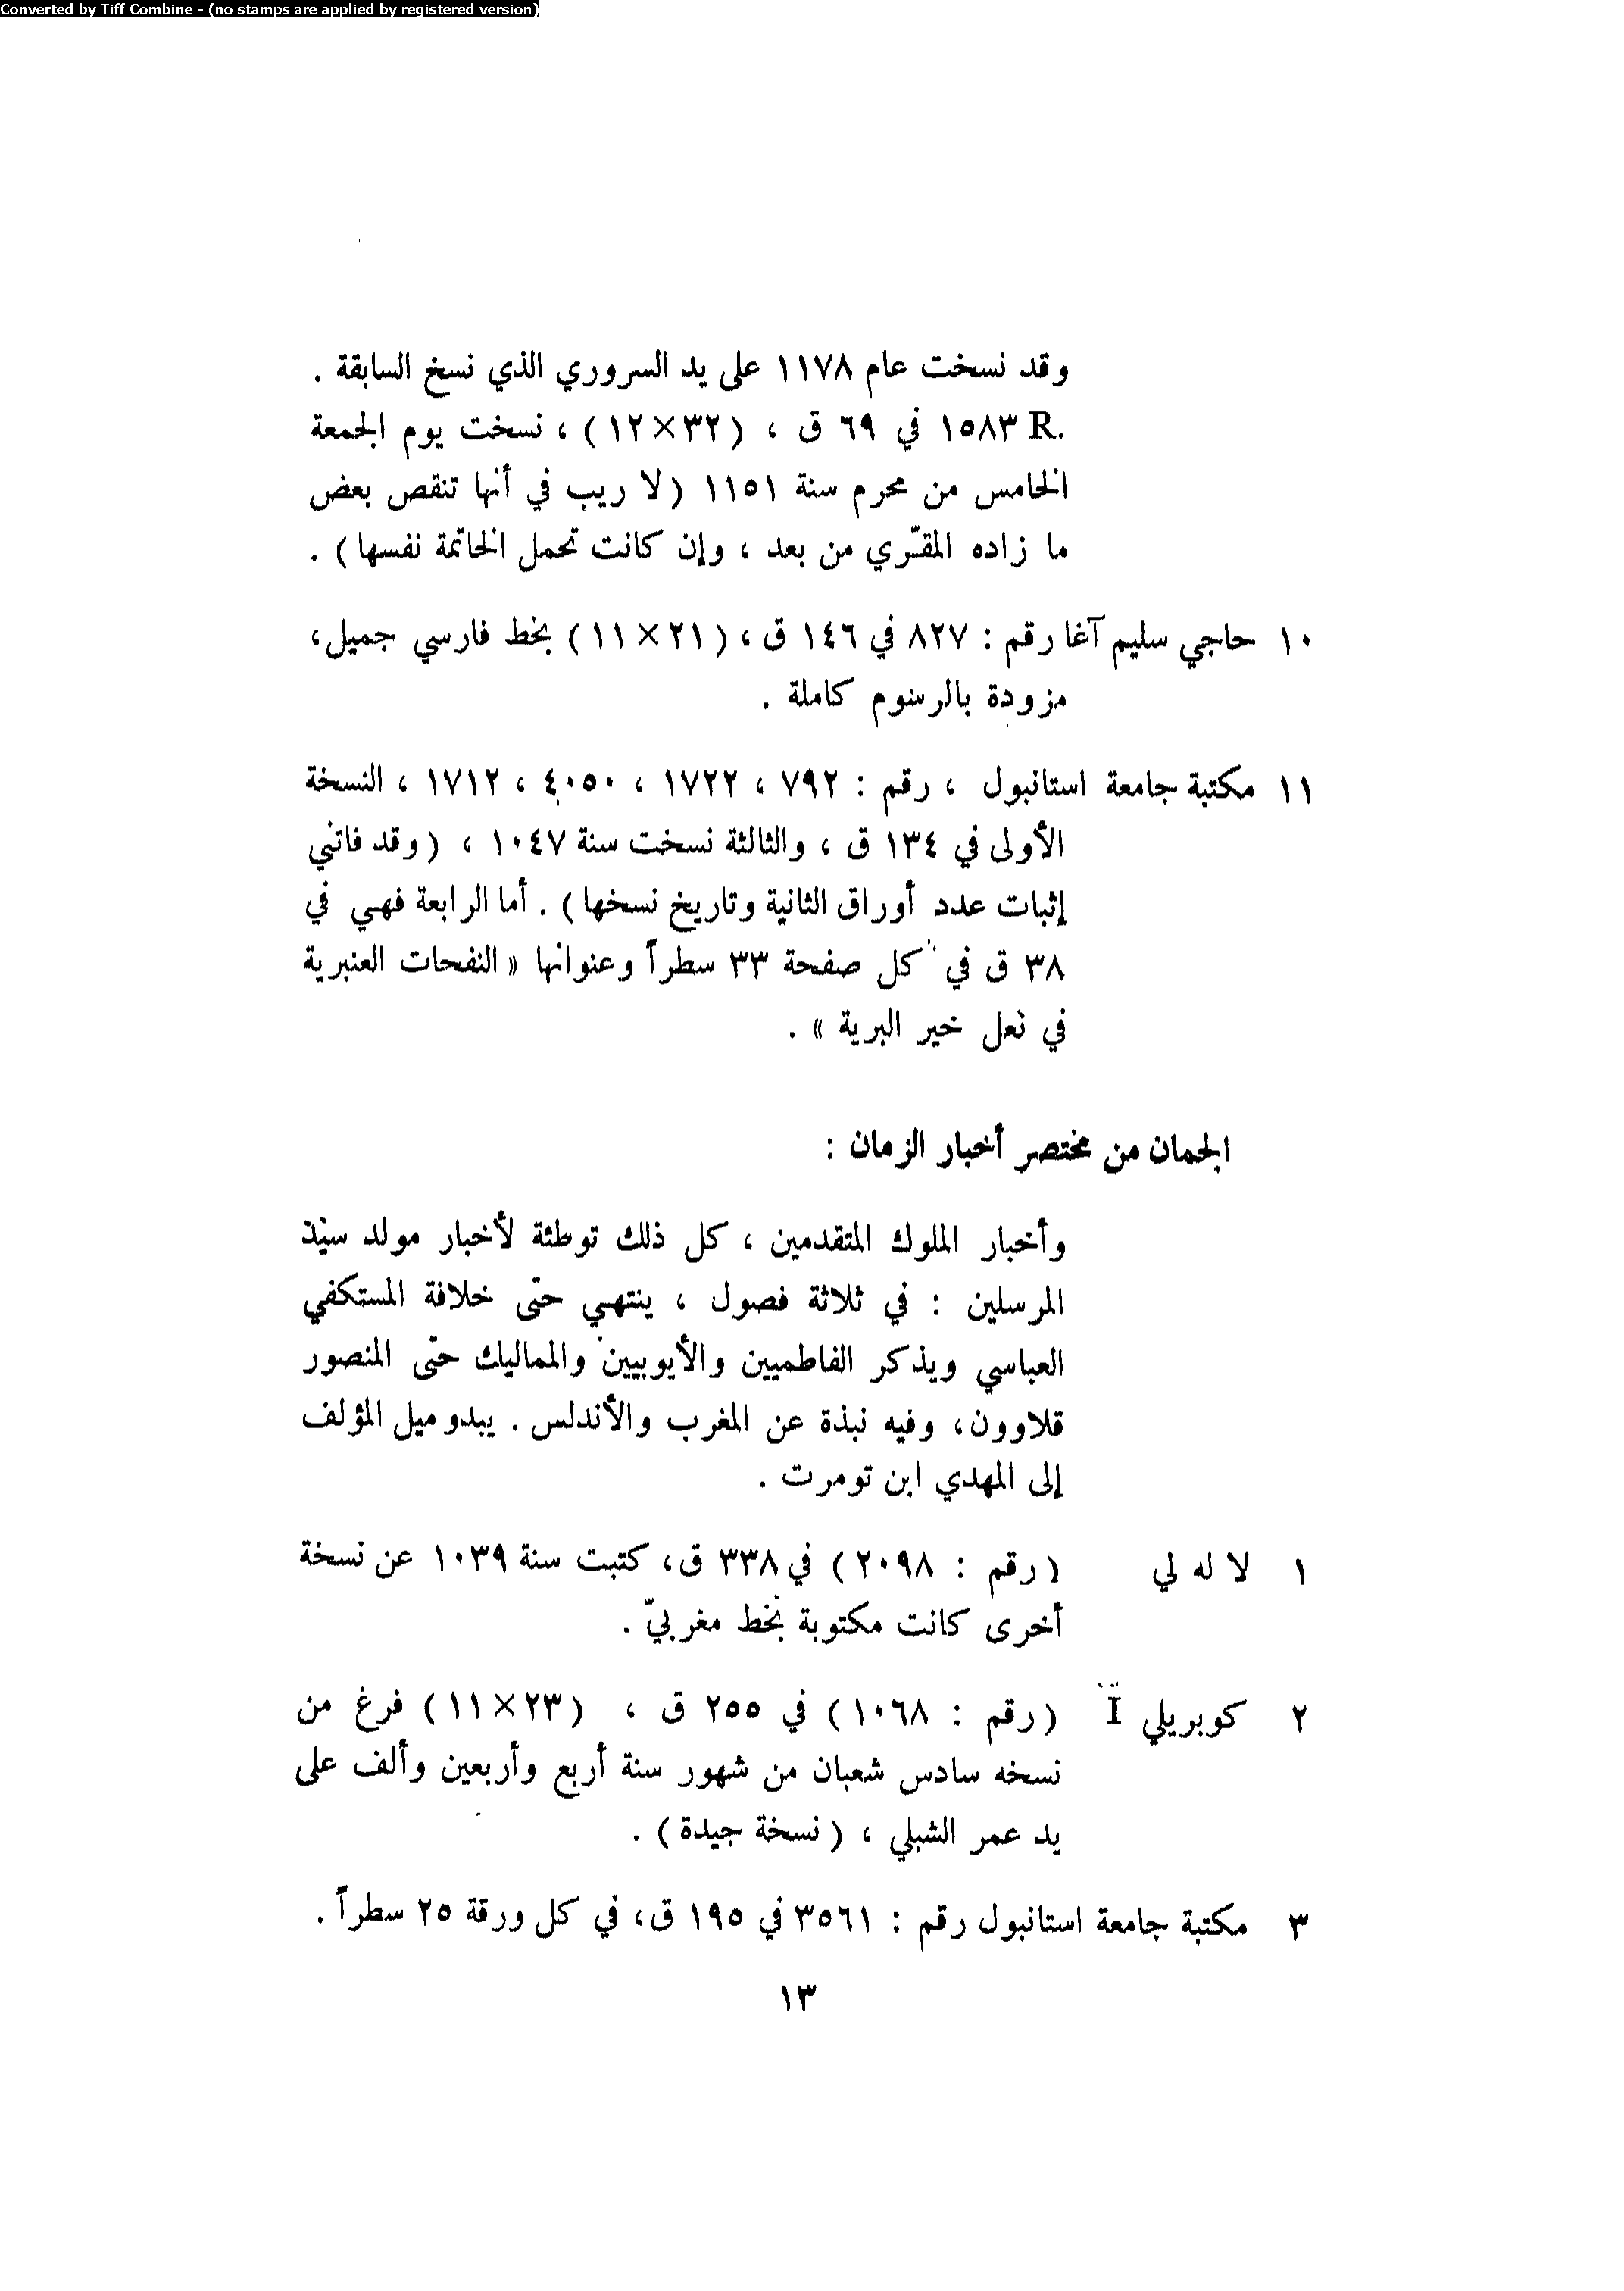 Converted by Tiff Combine - (no stamps are applied by registered version)
وقد نسخت عام ١١٧٨ على يد السروري الذي نسخ السابقة .
R. ١٥٨٣ في ٦٩ ق ، (٣٢×١٢) ، نسخت يوم الجمعة
الخامس من محرم سنة ١١٥١ (لا ريب في أنها تنقص بعض
ما زاده المقّري من بعد ، وإن كانت تحمل الخاتمة نفسها) .
١٠ حاجي سليم آغا رقم : ٨٢٧ في ١٤٦ ق ، (٢١×١١) بخط فارسي جميل،
مزودة بالرسوم كاملة .
١١ مكتبة جامعة استانبول ، رقم : ٧٩٢ ، ١٧٢٢ ، ٤٠٥٠ ، ١٧١٢ ، النسخة
الأولى في ١٣٤ ق ، والثالثة نسخت سنة ١٠٤٧ ، (وقد فاتني
إثبات عدد أوراق الثانية وتاريخ نسخها) . أما الرابعة فهي في
٣٨ ق في كل صفحة ٣٣ سطراً وعنوانها « النفحات العنبرية
في نعل خير البرية » .
الجمان من مختصر أخبار الزمان :
وأخبار الملوك المتقدمين ، كل ذلك توطئة لأخبار مولد سيّد
المرسلين : في ثلاثة فصول ، ينتهي حتّى خلافة المستكفي
العباسي ويذكر الفاطميين والأيوبيين والمماليك حتّى المنصور
قلاوون، وفيه نبذة عن المغرب والأندلس . يبدو ميل المؤلف
إلى المهدي ابن تومرت .
١ لا له لي (رقم : ٢٠٩٨) في ٣٣٨ ق، كتبت سنة ١٠٣٩ عن نسخة
أخرى كانت مكتوبة بخط مغربيّ .
٢ كوبريلي I (رقم : ١٠٦٨) في ٢٥٥ ق ، (٢٣×١١) فرغ من
نسخه سادس شعبان من شهور سنة أربع وأربعين وألف على
يد عمر الشبلي ، (نسخة جيدة) .
٣ مكتبة جامعة استانبول رقم : ٣٥٦١ في ١٩٥ ق، في كل ورقة ٢٥ سطراً .
١٣